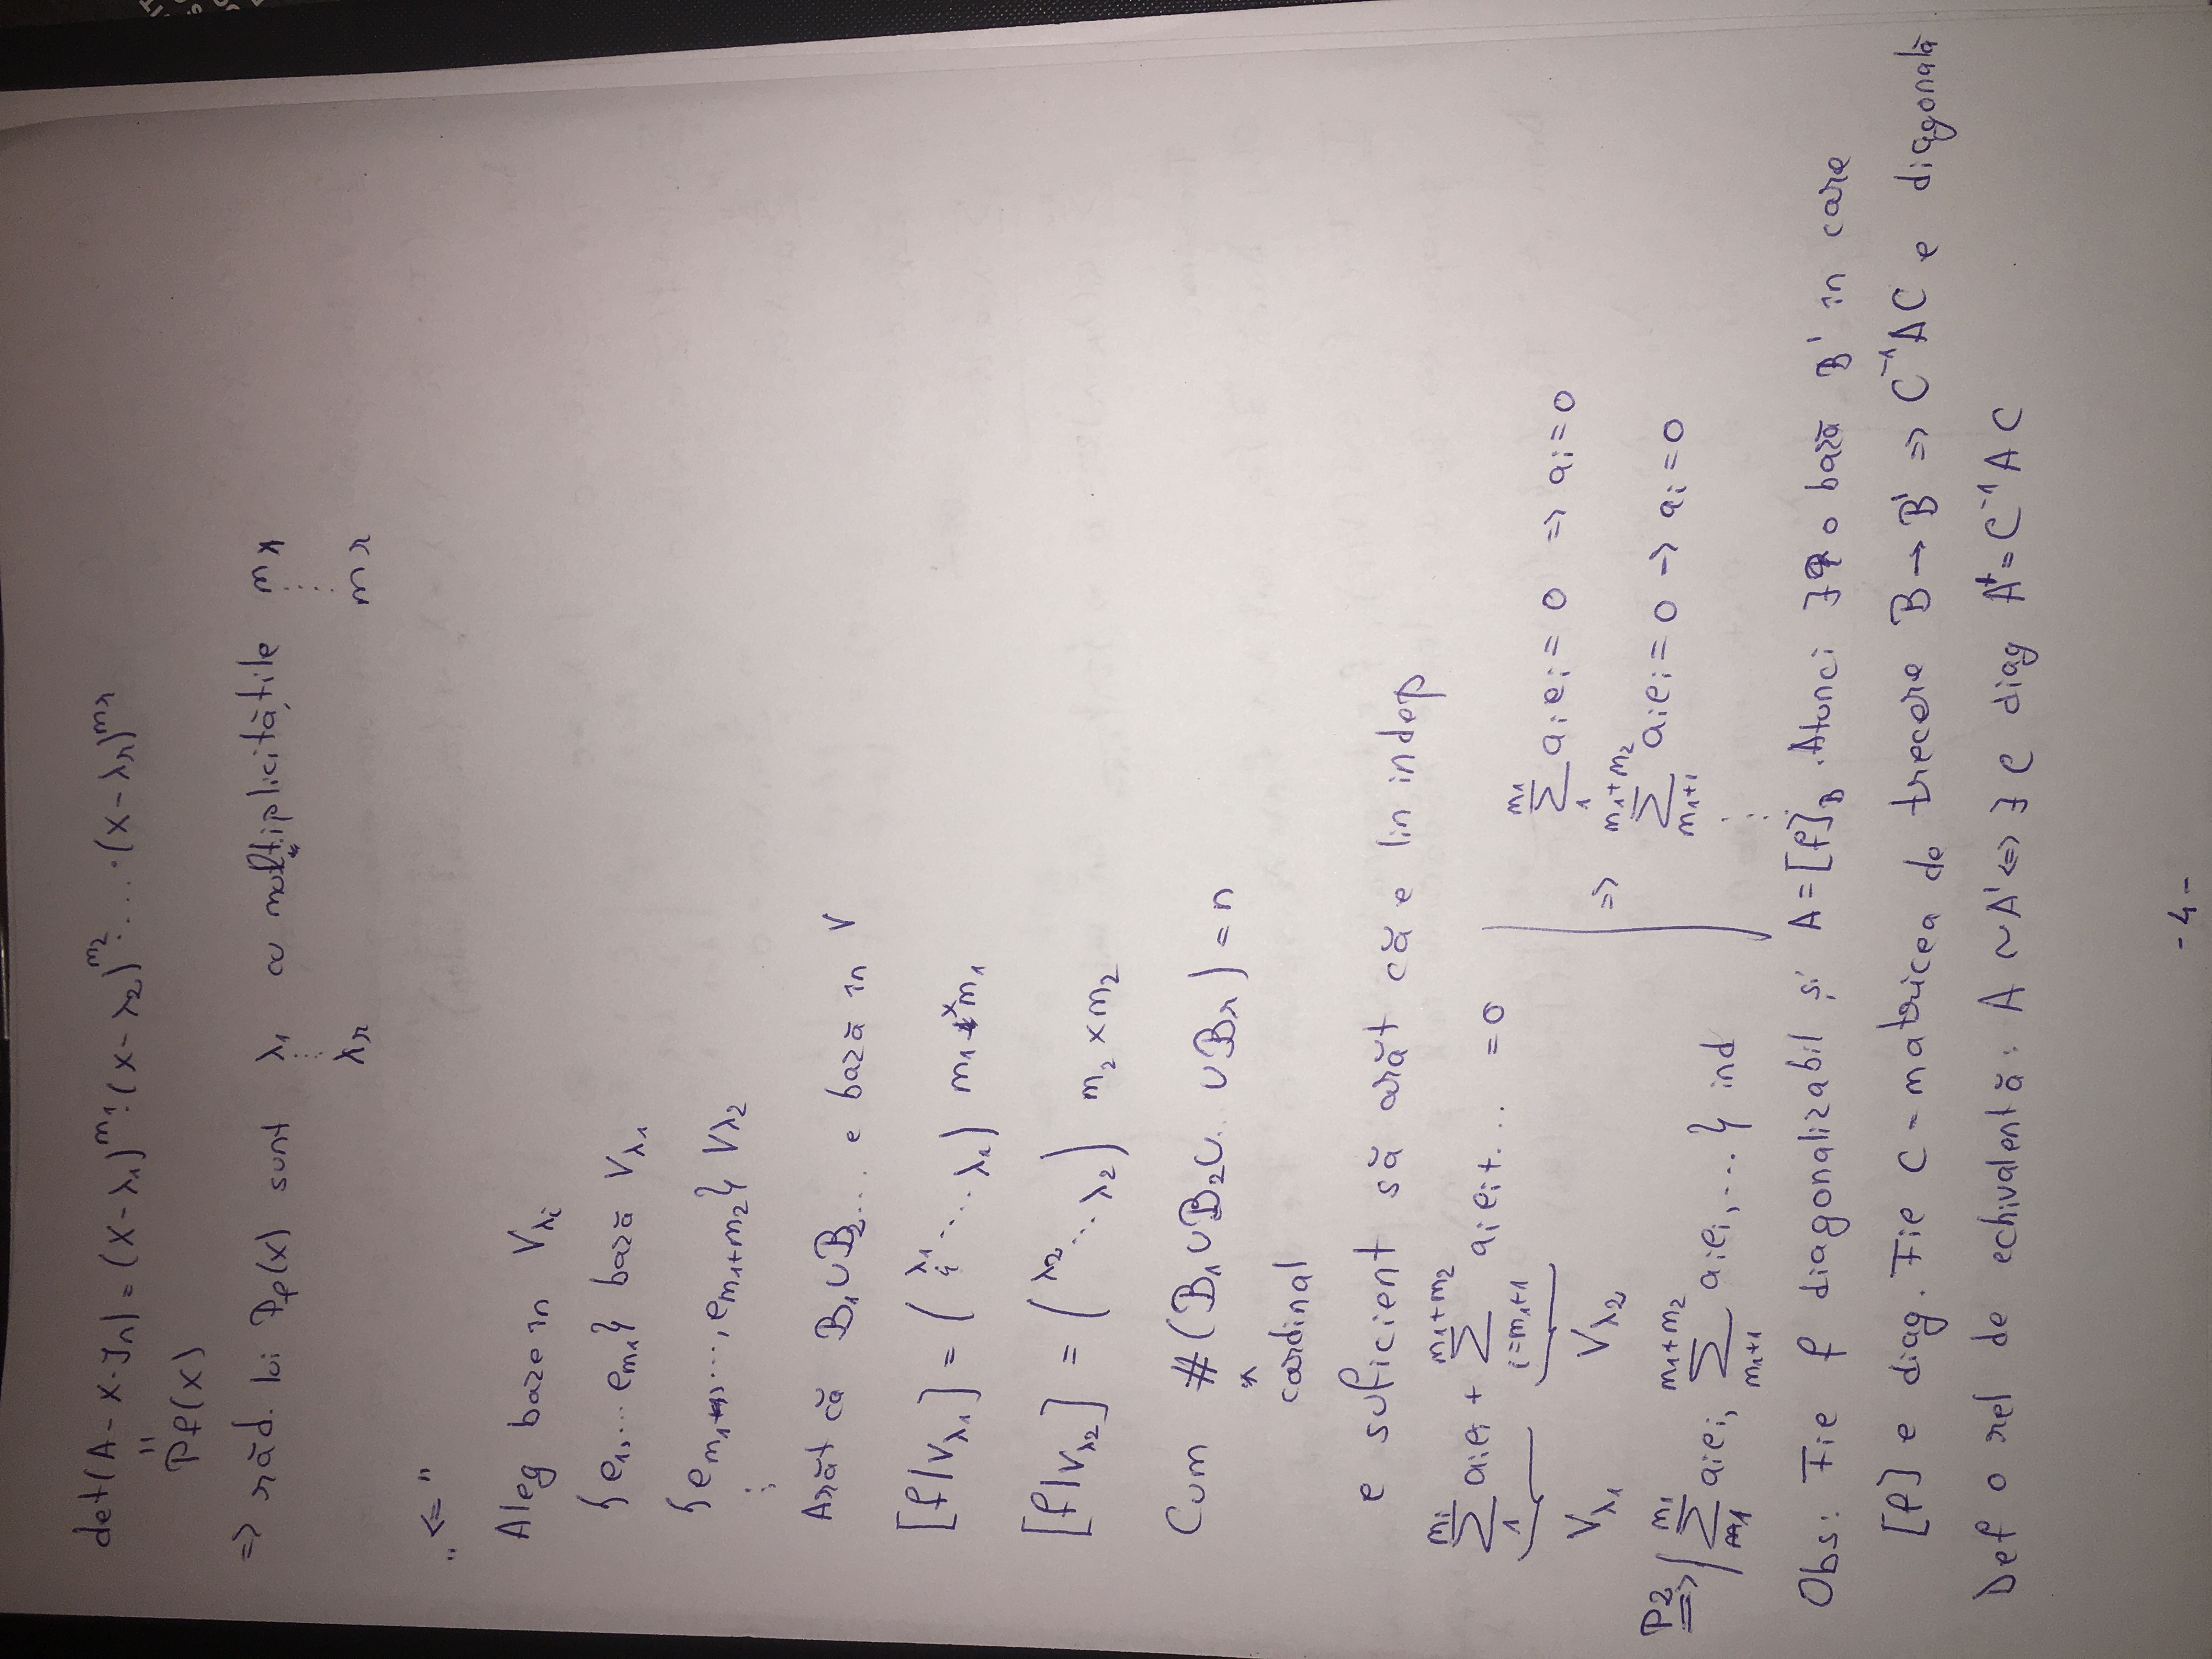 det(A - X·Jn) = (X-λ1)^m1·(X-λ2)^m2·...·(X-λr)^mr
"
Pf(X)
=> răd. lui Pf(X) sunt λ1 cu multiplicitățile m1
⋮ ⋮
λr mr
„<="
Aleg baze în Vλi
{e1,... em1} bază Vλ1
{em1+1,..., em1+m2} Vλ2
⋮
Arăt că B1∪B2... e bază în V
[f|Vλ1] = (λ1 ⋱ λ1) m1×m1
[f|Vλ2] = (λ2 ⋱ λ2) m2×m2
Cum #(B1∪B2∪... ∪Br) = n
cardinal
e suficient să arăt că e lin indep
∑_1^mi aiei + ∑_i=m1+1^m1+m2 aiei+... = 0
Vλ1 Vλ2
P2=> {∑_1^m1 aiei, ∑_m1+1^m1+m2 aiei,...} ind
=> ∑_1^m1 aiei = 0 => ai=0
∑_m1+1^m1+m2 aiei = 0 -> ai=0
⋮
Obs: Fie f diagonalizabil și A=[f]B. Atunci ∃ o bază B' în care
[f] e diag. Fie C = matricea de trecere B→B' => C^-1AC e diagonală
Def o rel de echivalentă: A ~A' <=> ∃ C diag A'=C^-1 A C
-4-